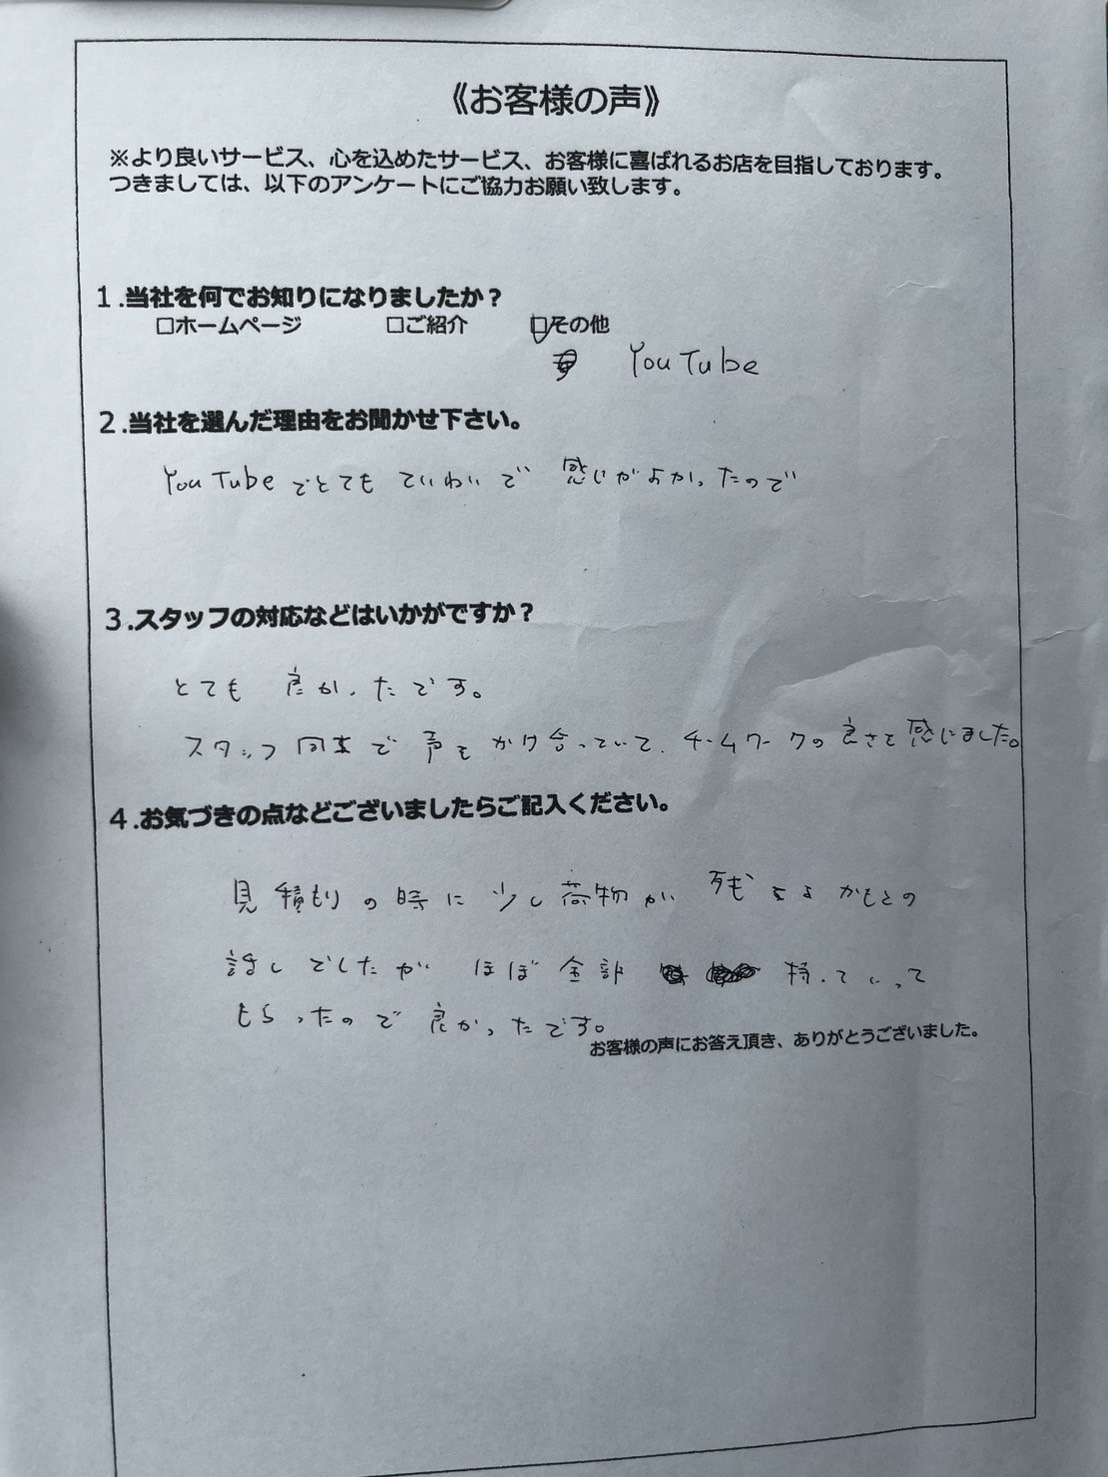 《お客様の声》
※より良いサービス、心を込めたサービス、お客様に喜ばれるお店を目指しております。
つきましては、以下のアンケートにご協力お願い致します。
1.当社を何でお知りになりましたか？
□ホームページ □ご紹介 □その他
YouTube
2.当社を選んだ理由をお聞かせ下さい。
YouTubeでとてもていねいで 感じがよかったので
3.スタッフの対応などはいかがですか？
とても 良かったです。
スタッフ同士で 声をかけ合っていて、チームワークの良さを感じました。
4.お気づきの点などございましたらご記入ください。
見積もりの時に少し荷物が かもとの
話しでしたが ほぼ全部 持っていって
もらったので良かったです。
お客様の声にお答え頂き、ありがとうございました。